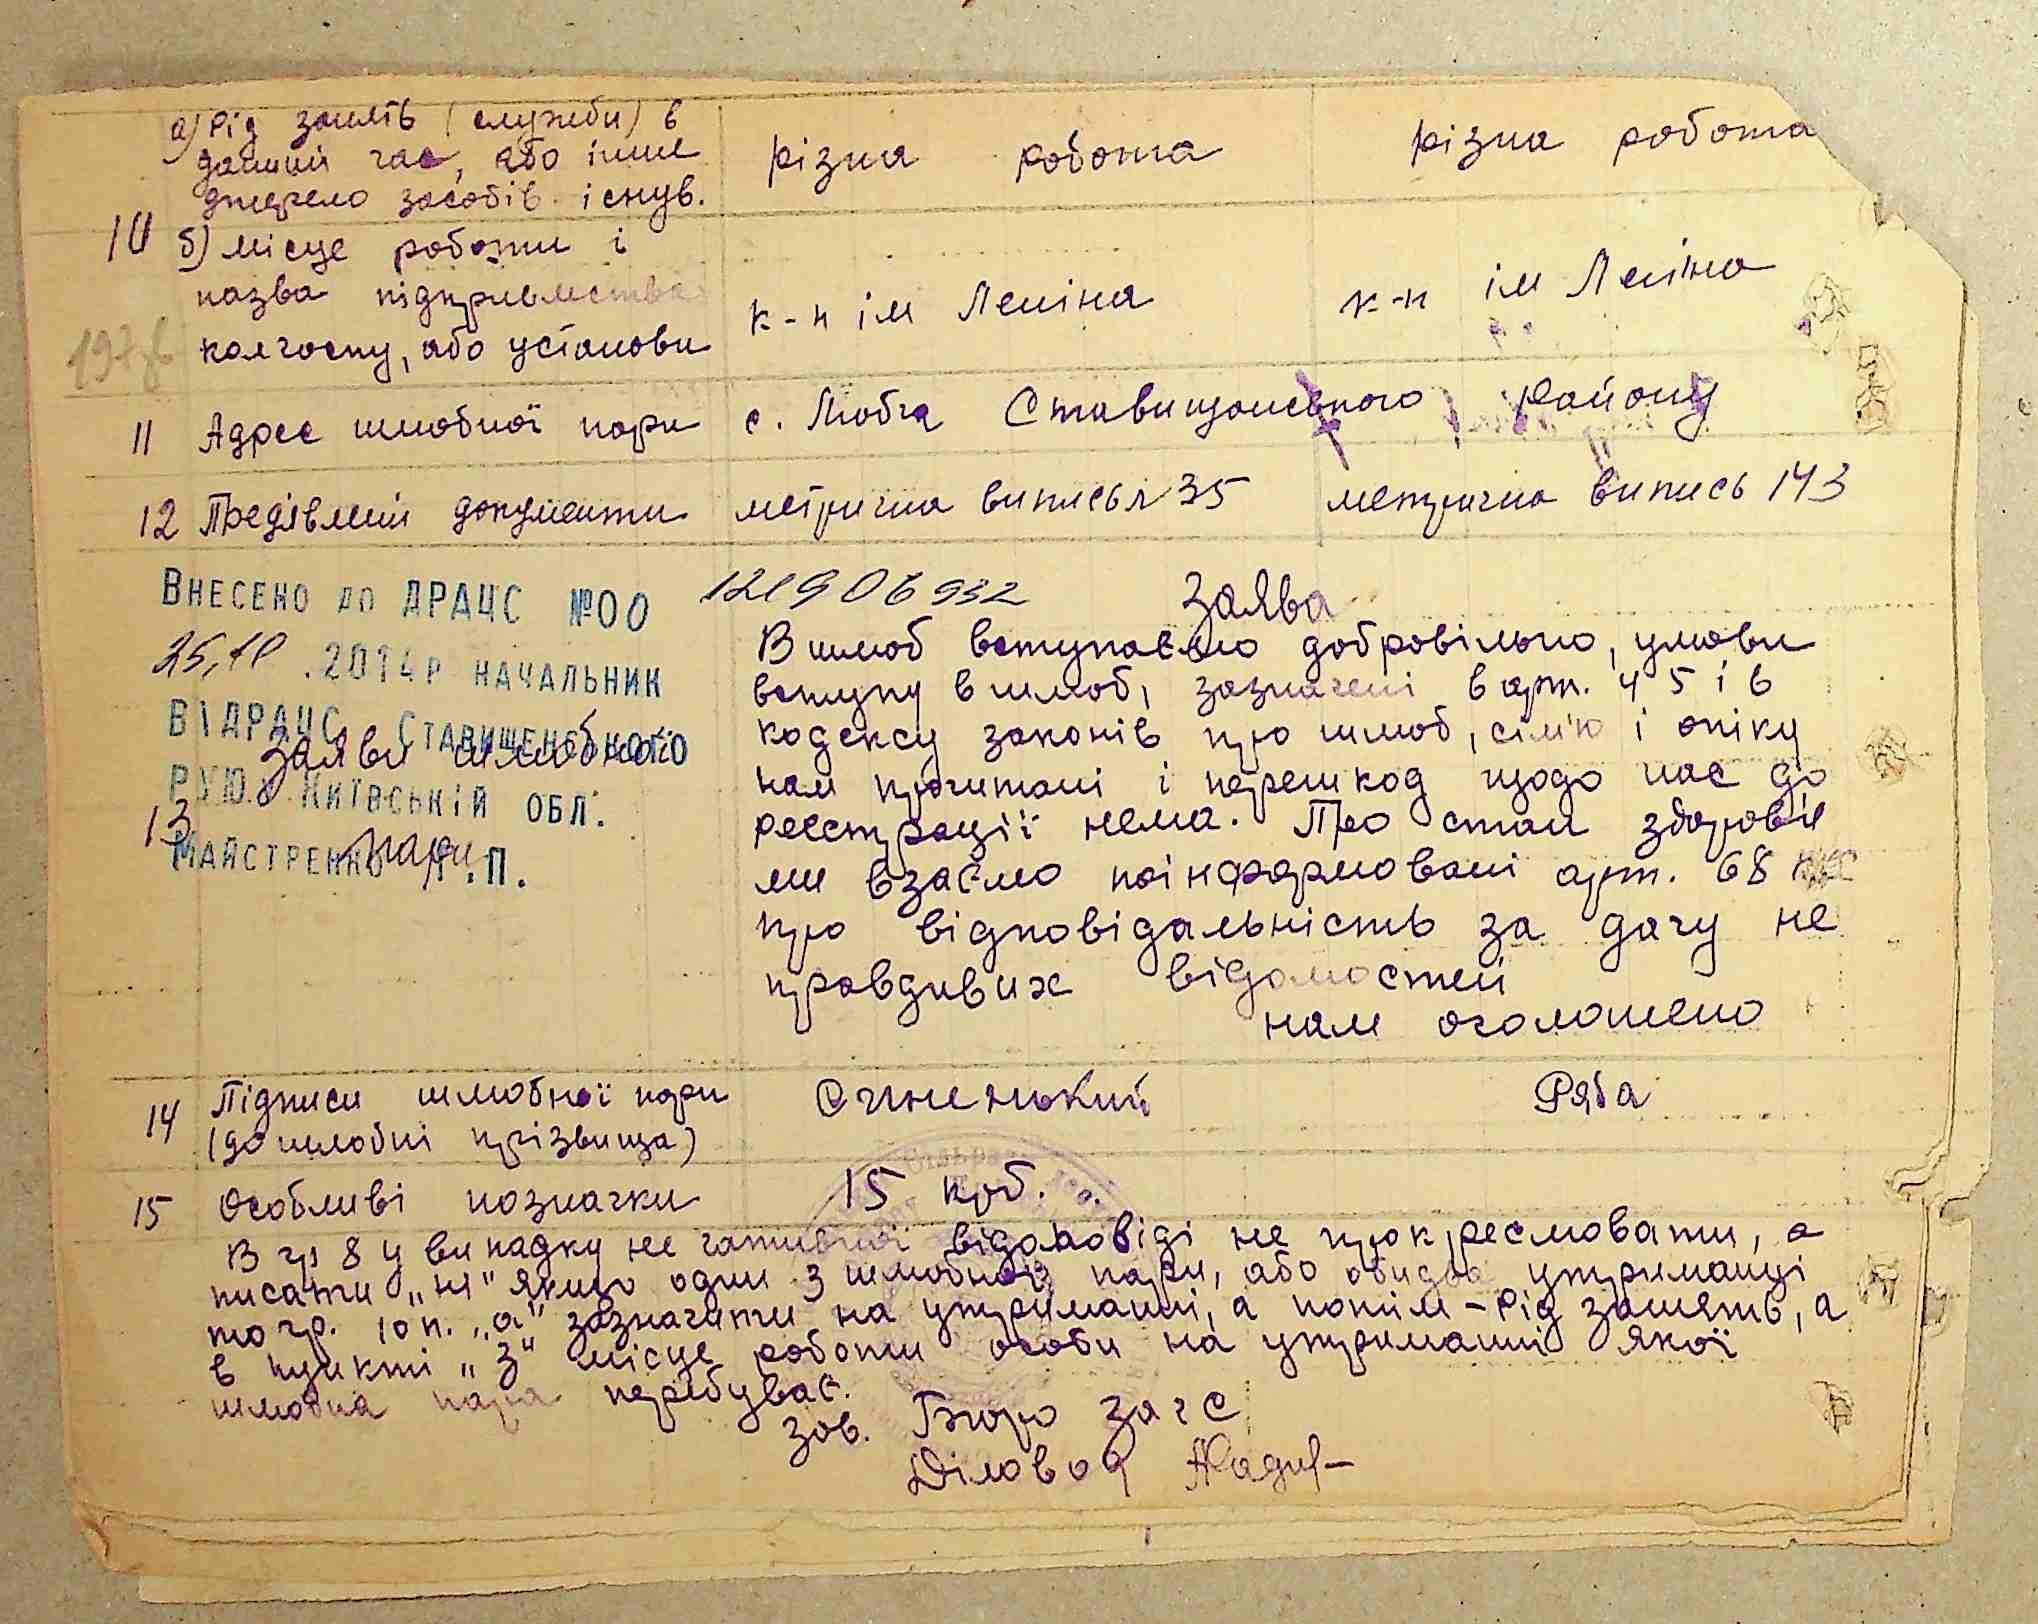 а) Рід занять (служби) в різна робота різна робота
даний час, або інше
джерело засобів існув.
10 б) місце роботи і
назва підприємства к-п ім Леніна к-п ім Леніна
колгоспу, або установи
11 Адрес шлюбної пари с. Любча Ставищанського Району
12 Предявлені документи метрична випись 35 метрична випись 143
ВНЕСЕНО ДО ДРАЦС №00 121906932
25,10 .2014р НАЧАЛЬНИК
ВІДРАЦС СТАВИЩЕНСЬКОГО
РУЮ КИЇВСЬКІЙ ОБЛ.
МАЙСТРЕНКО Г.П.
13 Заява шлюбної
пари
Заява
В шлюб вступаємо добровільно, умови
вступу в шлюб, зазначені в арт. 4 5 і 6
кодексу законів про шлюб, сім'ю і опіку
нам прочитані і перешкод щодо нас до
реєстрації нема. Про стан здоров'я
ми взаємо поінформовані арт. 68
про відповідальність за дачу не
правдивих відомостей
нам оголошено
14 Підписи шлюбної пари Синенький Ряба
(дошлюбні прізвища)
15 Особливі позначки 15 крб.
В гр 8 у випадку негативної відповіді не прокреслювати, а
писати „ні" якщо один з шлюбної пари, або обидва утриманці
то гр. 10 п. „а" зазначити на утриманні, а потім – рід занять, а
в пункті „З" місце роботи особи на утриманні якої
шлюбна пара перебуває.
зав. Бюро загс
Діловод